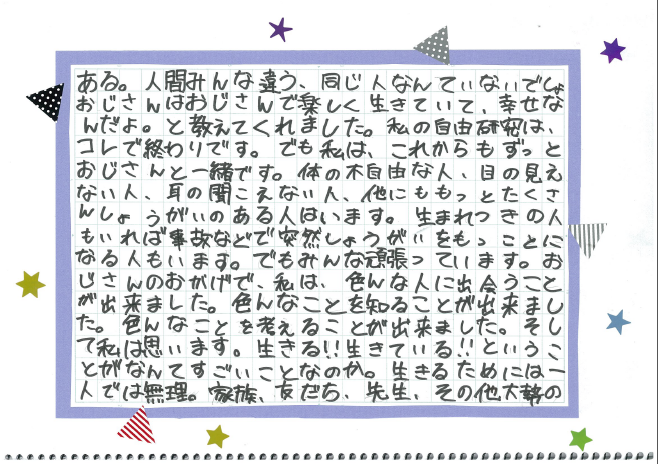 ある。人間みんな違う、同じ人なんていないでしょ
おじさんはおじさんで楽しく生きていて、幸せな
んだよ。と教えてくれました。私の自由研究は、
コレで終わりです。でも私は、これからもずっと
おじさんと一緒です。体の不自由な人、目の見え
ない人、耳の聞こえない人、他にももっとたくさ
んしょうがいのある人はいます。生まれつきの人
もいれば事故などで突然しょうがいをもつことに
なる人もいます。でもみんな頑張っています。お
じさんのおかげで、私は、色んな人に出会うこと
が出来ました。色んなことを知ることが出来まし
た。色んなことを考えることが出来ました。そし
て私は思います。生きる!!生きている!!というこ
とがなんてすごいことなのか。生きるためには一
人では無理。家族、友だち、先生、その他大勢の